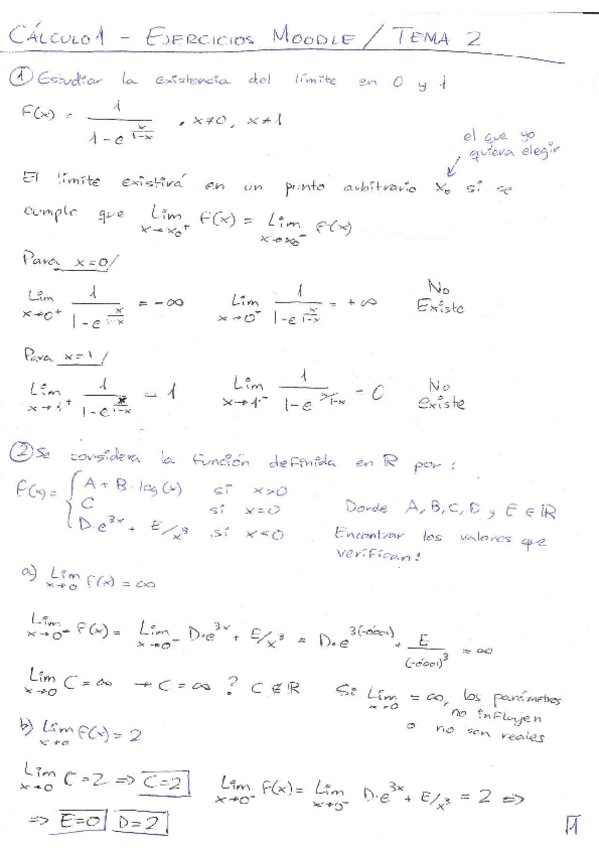 CÁLCULO 1 - EJERCICIOS MOODLE / TEMA 2
① Estudiar la existencia del límite en 0 y 1
F(x) = 1 / (1 - e^(x/(1-x))) , x≠0, x≠1
el que yo
quiera elegir
El límite existirá en un punto arbitrario x₀ si se
cumple que Lim x→x₀⁺ F(x) = Lim x→x₀⁻ F(x)
Para x=0/
Lim x→0⁺ 1 / (1 - e^(x/(1-x))) = -∞ Lim x→0⁻ 1 / (1 - e^(x/(1-x))) = +∞ No Existe
Para x=1/
Lim x→1⁺ 1 / (1 - e^(x/(1-x))) = 1 Lim x→1⁻ 1 / (1 - e^(x/1-x)) = 0 No existe
② Se considera la función definida en ℝ por:
F(x) = { A + B·log(x) si x>0
C si x=0 Donde A, B, C, D y E ∈ ℝ
D·e^(3x) + E/x³ si x<0 Encontrar los valores que
verifican:
a) Lim x→0 F(x) = ∞
Lim x→0⁻ F(x) = Lim x→0⁻ D·e^(3x) + E/x³ = D·e^(3(-0'001)) + E/(-0'001)³ = ∞
Lim x→0 C = ∞ → C = ∞ ? C ∉ ℝ Si Lim x→0 = ∞, los parámetros
no influyen
o no son reales
b) Lim x→0 F(x) = 2
Lim x→0 C = 2 ⇒ C=2 Lim x→0⁻ F(x) = Lim x→0⁻ D·e^(3x) + E/x³ = 2 ⇒
⇒ E=0 D=2
1